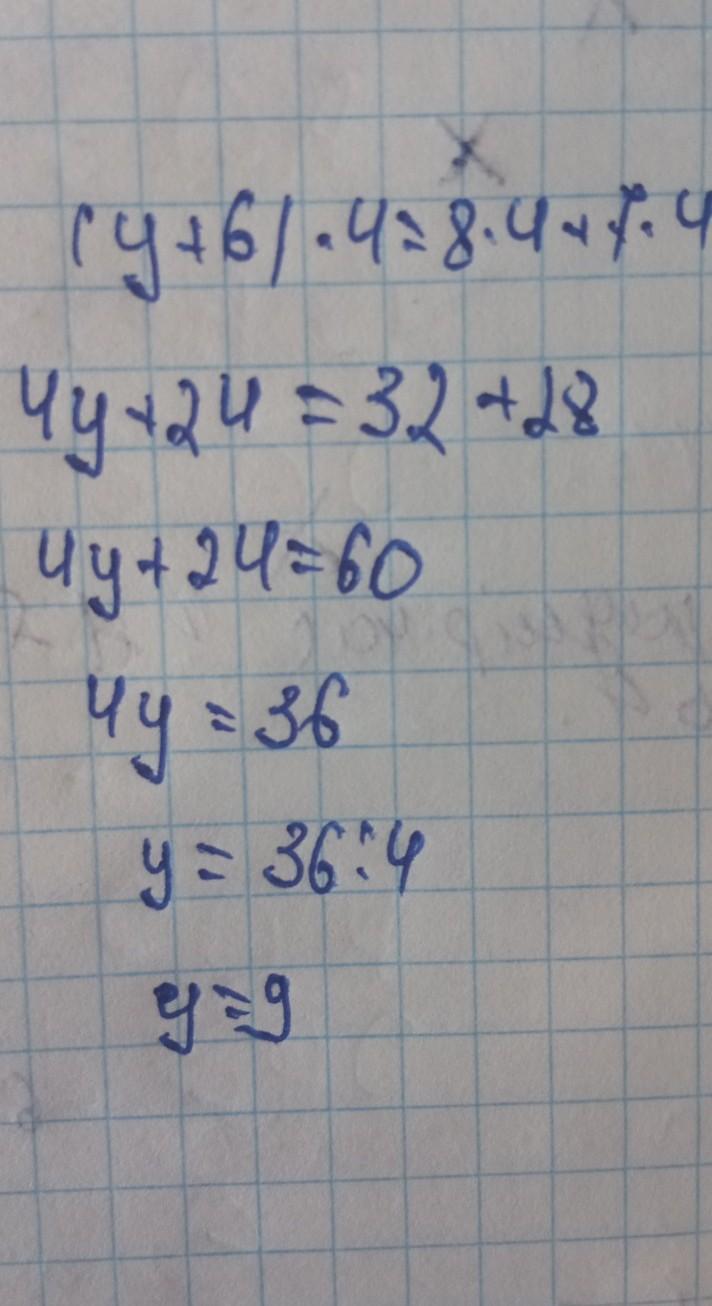 (y+6)·4=8·4+7·4
4y+24=32+28
4y+24=60
4y=36
y=36:4
y=9